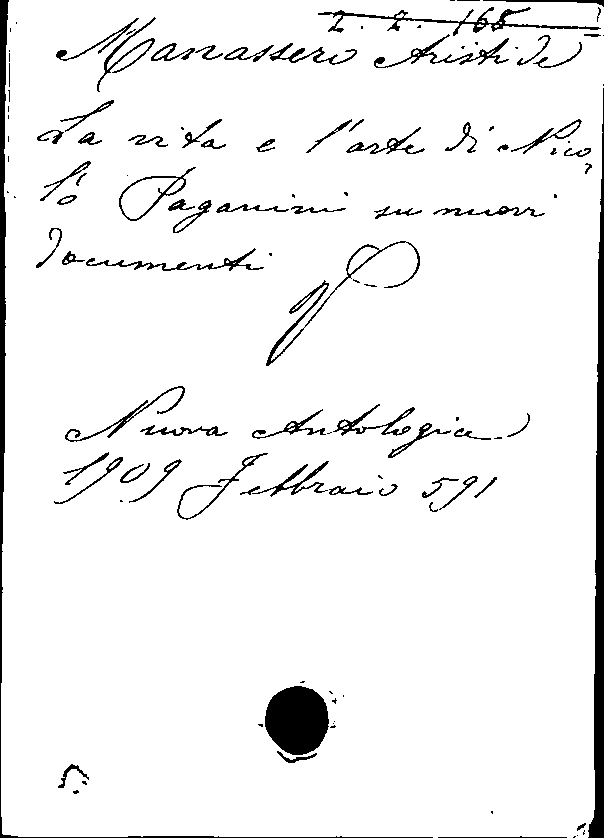 2. 2. 165
Manassero Aristide
La vita e l'arte di Nico,
lò Paganini su nuovi
documenti
Nuova Antologia
1909 Febbraio 591